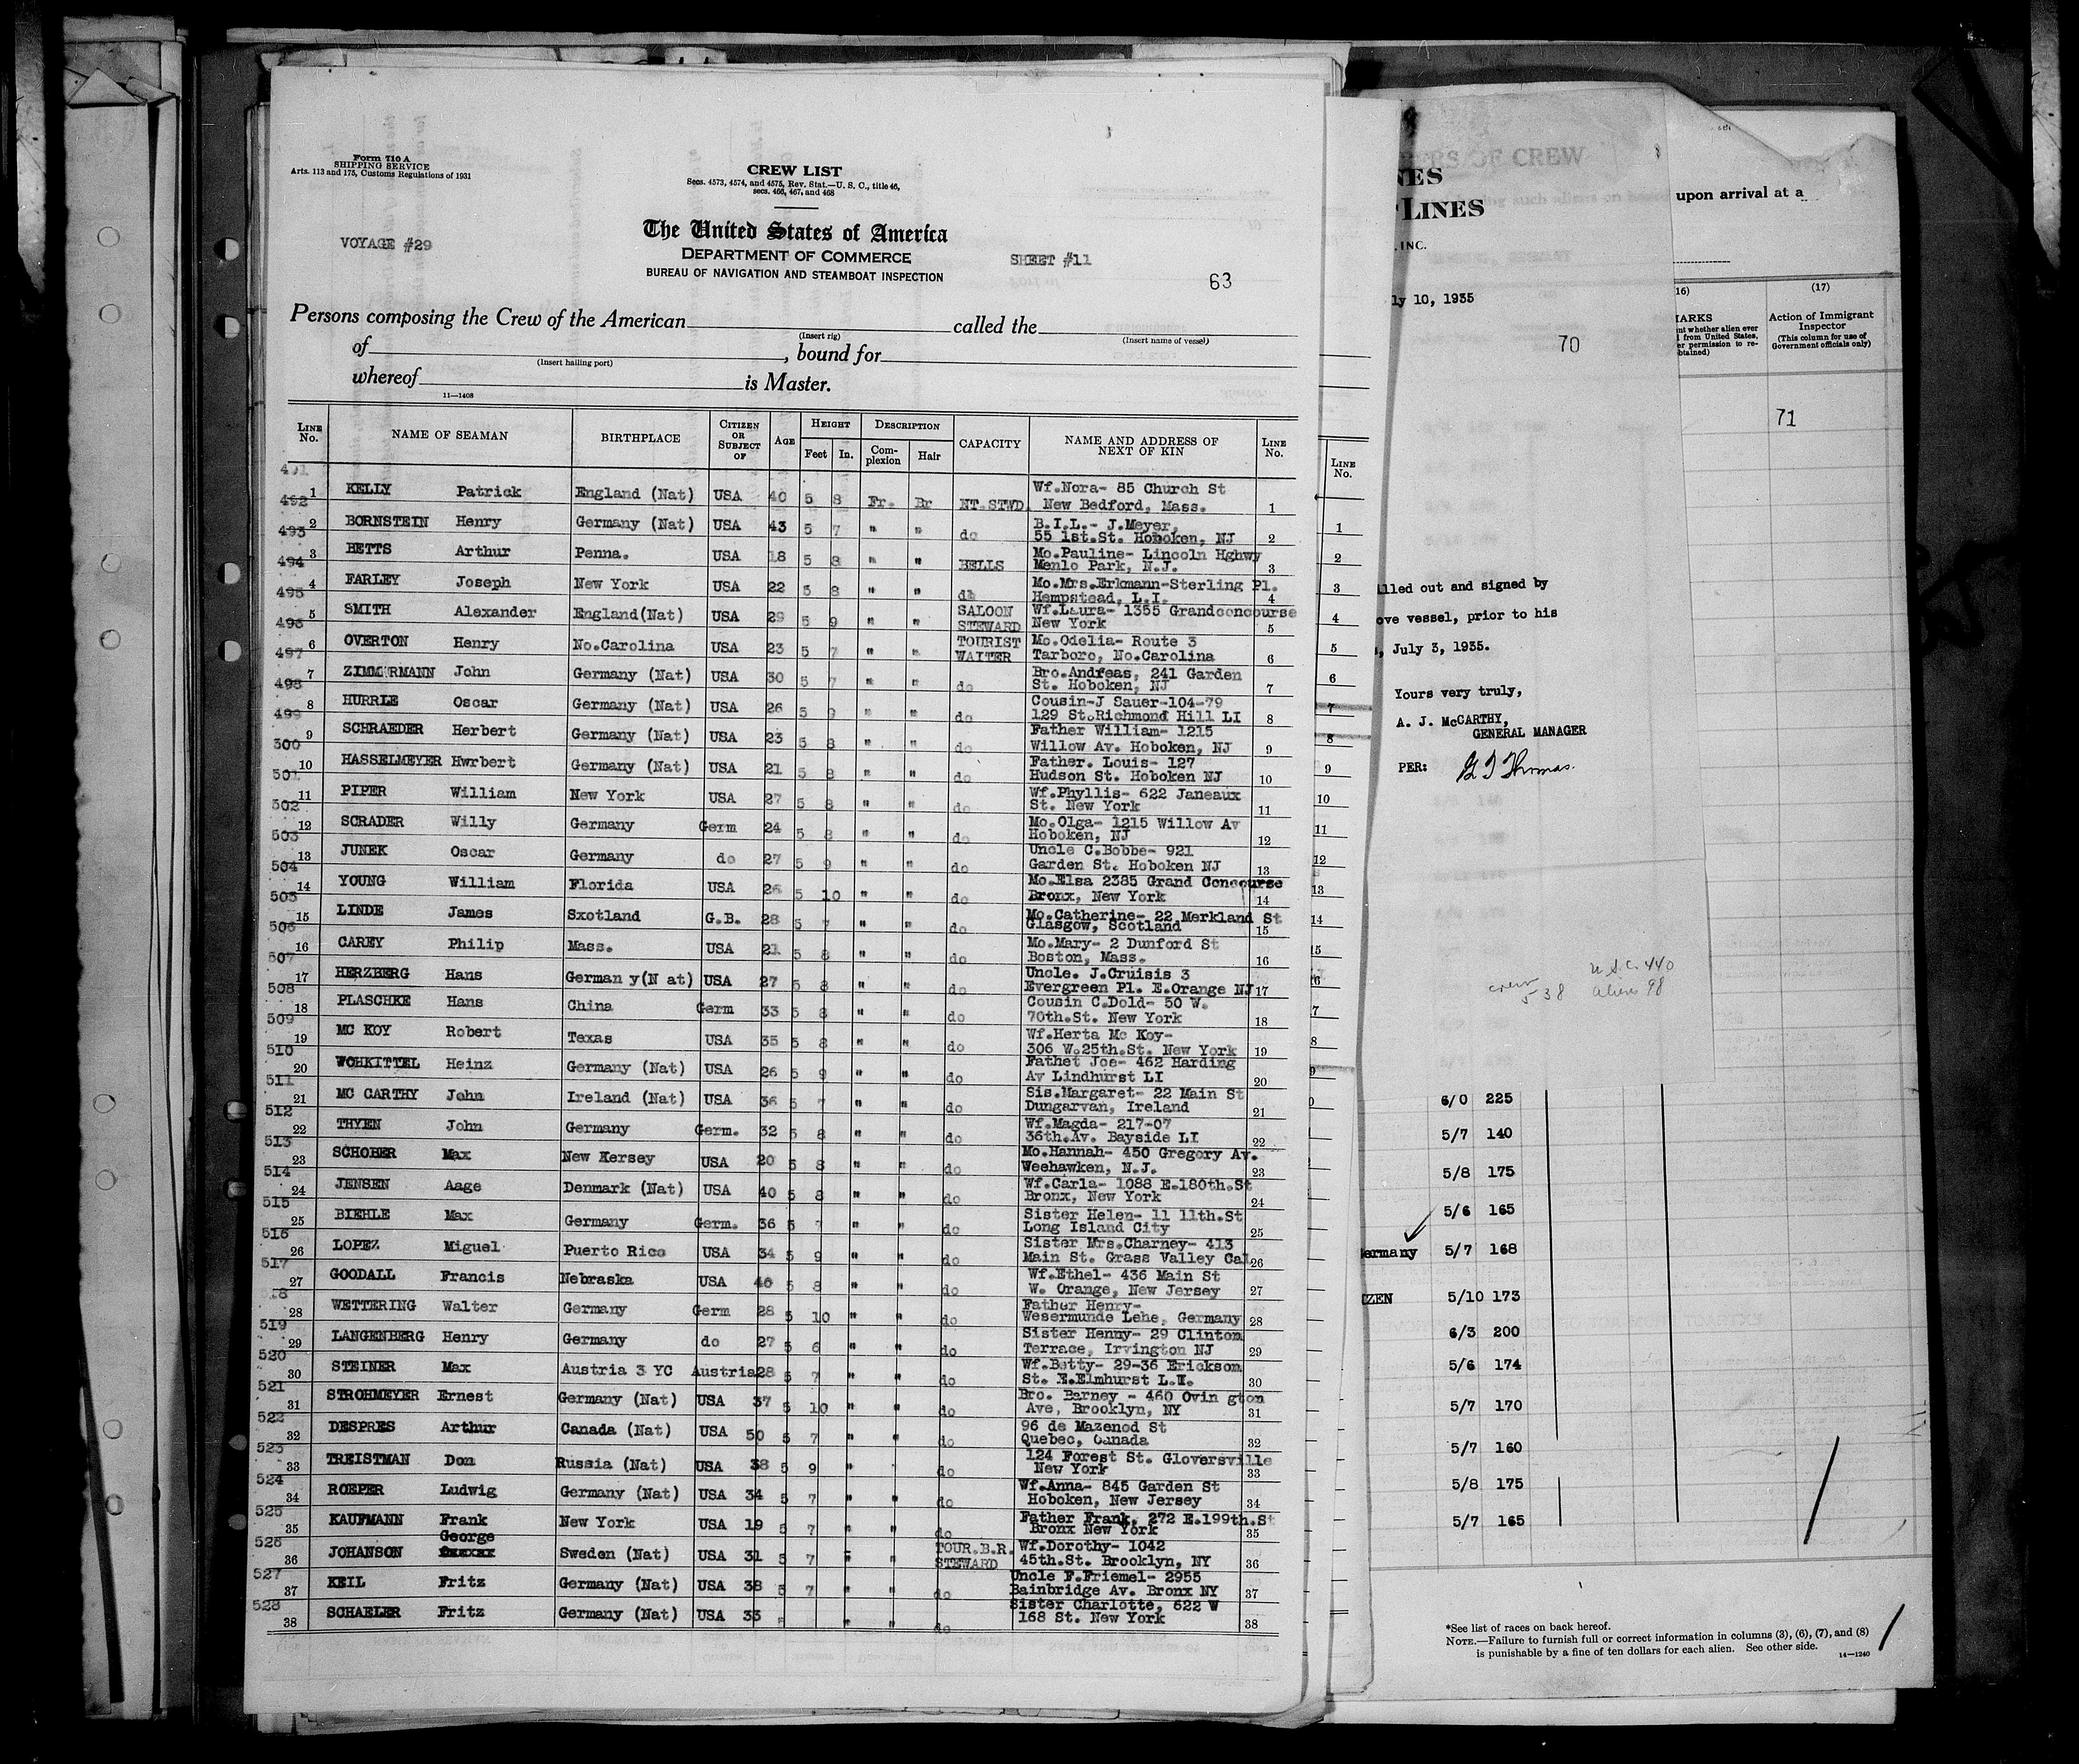 Form 710 A
SHIPPING SERVICE
Arts. 113 and 175, Customs Regulations of 1931
CREW LIST
Secs. 4573, 4574, and 4575, Rev. Stat.—U. S. C., title 46,
secs. 466, 467, and 468
The United States of America
DEPARTMENT OF COMMERCE
BUREAU OF NAVIGATION AND STEAMBOAT INSPECTION
VOYAGE #29
SHEET #11
63
Persons composing the Crew of the American called the
(Insert rig) (Insert name of vessel)
of , bound for
(Insert hailing port)
whereof is Master.
11—1408
LINE No. NAME OF SEAMAN BIRTHPLACE CITIZEN OR SUBJECT OF AGE HEIGHT Feet In. DESCRIPTION Complexion Hair CAPACITY NAME AND ADDRESS OF NEXT OF KIN LINE No.
491
492 1 KELLY Patrick England (Nat) USA 40 5 8 Fr. Br NT.STWD. Wf.Nora- 85 Church St New Bedford, Mass. 1
493 2 BORNSTEIN Henry Germany (Nat) USA 43 5 7 " " do B.I.L.- J.Meyer, 55 1st.St. Hoboken, NJ 2
494 3 BETTS Arthur Penna. USA 18 5 8 " " BELLS Mo.Pauline- Lincoln Hghwy Menlo Park, N.J. 3
495 4 FARLEY Joseph New York USA 22 5 8 " " Mo.Mrs.Erkmann-Sterling Pl. Hempstead, L.I. 4
496 5 SMITH Alexander England(Nat) USA 29 5 9 " " SALOON STEWARD Wf.Laura- 1355 Grandconcourse New York 5
497 6 OVERTON Henry No.Carolina USA 23 5 7 " " TOURIST WAITER Mo.Odelia- Route 3 Tarboro, No.Carolina 6
498 7 ZIMMERMANN John Germany (Nat) USA 30 5 7 " " do Bro.Andreas, 241 Garden St. Hoboken, NJ 7
499 8 HURRLE Oscar Germany (Nat) USA 26 5 9 " " do Cousin-J Sauer-104-79 129 St.Richmond Hill LI 8
500 9 SCHRAEDER Herbert Germany (Nat) USA 23 5 8 " " do Father William- 1215 Willow Av. Hoboken, NJ 9
501 10 HASSELMEYER Hwrbert Germany (Nat) USA 21 5 8 " " do Father. Louis- 127 Hudson St. Hoboken NJ 10
502 11 PIPER William New York USA 27 5 8 " " do Wf.Phyllis- 622 Janeaux St. New York 11
503 12 SCRADER Willy Germany Germ 24 5 8 " " do Mo.Olga- 1215 Willow Av Hoboken, NJ 12
504 13 JUNEK Oscar Germany do 27 5 9 " " do Uncle C.Bobbe- 921 Garden St. Hoboken NJ 13
505 14 YOUNG William Florida USA 26 5 10 " " do Mo.Elsa 2385 Grand Concourse Bronx, New York 14
506 15 LINDE James Sxotland G.B. 28 5 7 " " do Mo.Catherine- 22 Merkland St Glasgow, Scotland 15
507 16 CAREY Philip Mass. USA 21 5 8 " " do Mo.Mary- 2 Dunford St Boston, Mass. 16
508 17 HERZBERG Hans German y(N at) USA 27 5 8 " " do Uncle. J.Cruisis 3 Evergreen Pl. E.Orange NJ 17
509 18 PLASCHKE Hans China Germ 33 5 8 " " do Cousin C.Dold- 50 W. 70th.St. New York 18
510 19 MC KOY Robert Texas USA 35 5 8 " " do Wf.Herta Mc Koy- 306 W.25th.St. New York 19
511 20 WOHKITTEL Heinz Germany (Nat) USA 26 5 9 " " do Fathet Joe- 462 Harding Av Lindhurst LI 20
512 21 MC CARTHY John Ireland (Nat) USA 36 5 7 " " do Sis.Margaret- 22 Main St Dungarvan, Ireland 21
513 22 THYEN John Germany Germ. 32 5 8 " " do Wf.Magda- 217-07 36th.Av. Bayside LI 22
514 23 SCHOBER Max New Kersey USA 20 5 8 " " do Mo.Hannah- 450 Gregory Av. Weehawken, N.J. 23
515 24 JENSEN Aage Denmark (Nat) USA 40 5 8 " " do Wf.Carla- 1088 E.180th.St Bronx, New York 24
516 25 BIEHLE Max Germany Germ. 36 5 7 " " do Sister Helen- 11 11th.St Long Island City 25
517 26 LOPEZ Miguel Puerto Rico USA 34 5 9 " " do Sister Mrs.Charney- 413 Main St. Grass Valley Cal 26
518 27 GOODALL Francis Nebraska USA 40 5 8 " " do Wf.Ethel- 436 Main St W. Orange, New Jersey 27
519 28 WETTERING Walter Germany Germ 28 5 10 " " do Father Henry- Wesermunde Lehe, Germany 28
520 29 LANGENBERG Henry Germany do 27 5 6 " " do Sister Henny- 29 Clinton Terrace, Irvington NJ 29
521 30 STEINER Max Austria 3 YC Austria 28 5 7 " " do Wf.Betty- 29-36 Erickson St. E.Elmhurst L.I. 30
522 31 STROHMEYER Ernest Germany (Nat) USA 37 5 10 " " do Bro. Barney - 460 Ovin gton Ave, Brooklyn, NY 31
523 32 DESPRES Arthur Canada (Nat) USA 50 5 7 " " do 96 de Mazenod St Quebec, Canada 32
524 33 TREISTMAN Don Russia (Nat) USA 38 5 9 " " do 124 Forest St. Gloversville New York 33
525 34 ROEPER Ludwig Germany (Nat) USA 34 5 7 " " do Wf.Anna- 845 Garden St Hoboken, New Jersey 34
526 35 KAUFMANN Frank New York USA 19 5 7 " " do Father Frank, 272 E.199th.St Bronx New York 35
527 36 JOHANSON George Sweden (Nat) USA 31 5 7 " " TOUR.B.R. STEWARD Wf.Dorothy- 1042 45th.St. Brooklyn, NY 36
528 37 KEIL Fritz Germany (Nat) USA 38 5 7 " " do Uncle F.Friemel- 2955 Bainbridge Av. Bronx NY 37
38 SCHAELER Fritz Germany (Nat) USA 33 " " do Sister Charlotte, 622 W 168 St. New York 38
LINE No.
1
2
3
4
5
6
7
8
9
10
11
12
13
14
15
LINES
, INC.
ly 10, 1935
70
lled out and signed by
ove vessel, prior to his
, July 3, 1935.
Yours very truly,
A. J. McCARTHY,
GENERAL MANAGER
PER: G J Thomas.
crew 538
U.S.C. 440
alien 98
OF CREW
upon arrival at a
(17)
Action of Immigrant Inspector
(This column for use of Government officials only)
71
6/0 225
5/7 140
5/8 175
5/6 165
ermany 5/7 168
IZEN 5/10 173
6/3 200
5/6 174
5/7 170
5/7 160
5/8 175
5/7 165
*See list of races on back hereof.
NOTE.—Failure to furnish full or correct information in columns (3), (6), (7), and (8)
is punishable by a fine of ten dollars for each alien. See other side.
14—1240